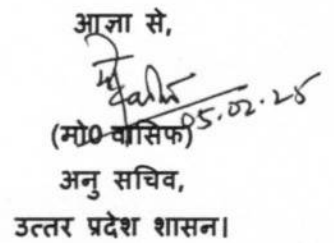 आज्ञा से,
05.02.25
(मो0 वासिफ)
अनु सचिव,
उत्तर प्रदेश शासन।